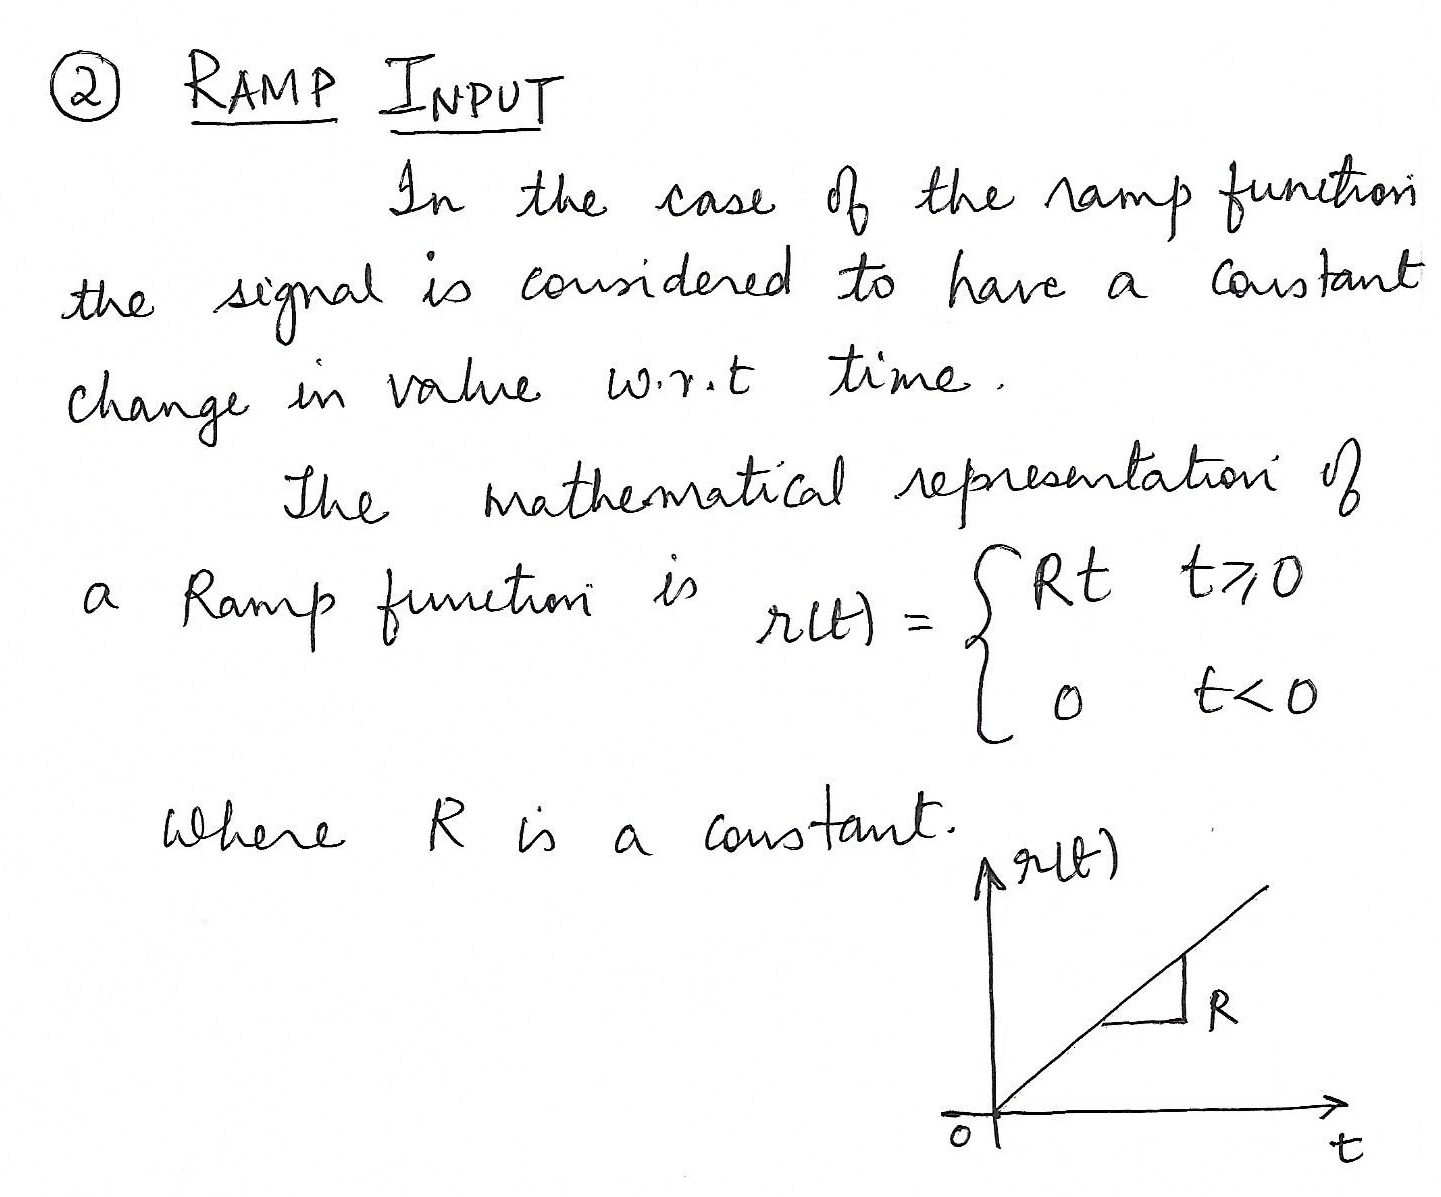 ② RAMP INPUT
In the case of the ramp function
the signal is considered to have a constant
change in value w.r.t time.
The mathematical representation of
a Ramp function is r(t) = { Rt t⩾0
0 t<0
where R is a constant.
r(t)
R
0
t